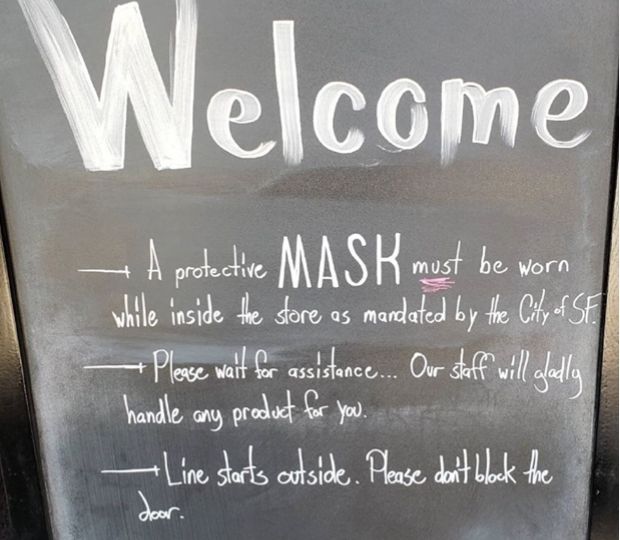 Welcome
A protective MASK must be worn
while inside the store as mandated by the City of SF.
Please wait for assistance... Our staff will gladly
handle any product for you.
Line starts outside. Please don't block the
door.